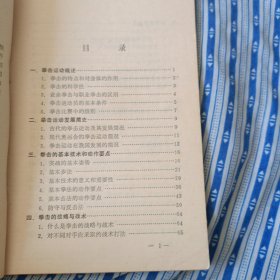 目 录
一、拳击运动概述 1
1. 拳击的特点和对身体的作用 1
2. 拳击的科学性 2
3. 业余拳击与职业拳击的区别
4. 拳击运动员的基本条件
5. 拳击比赛中的级别
二、拳击运动发展简史
1. 古代的拳击运动及其发展简况
2. 现代奥运会的拳击运动概况
3. 拳击运动在我国的发展简况
三、拳击的基本技术和动作要点
1. 实战的基本姿势
2. 基本步法
3. 基本技术的意义和重要性
4. 基本拳法的动作要点
5. 基本击法的动作要点
6. 防守与反击法
四、拳击的战略与战术 44
1. 什么是拳击的战略与战术 44
2. 对不同对手应采取的战术打法 45
— 1 —